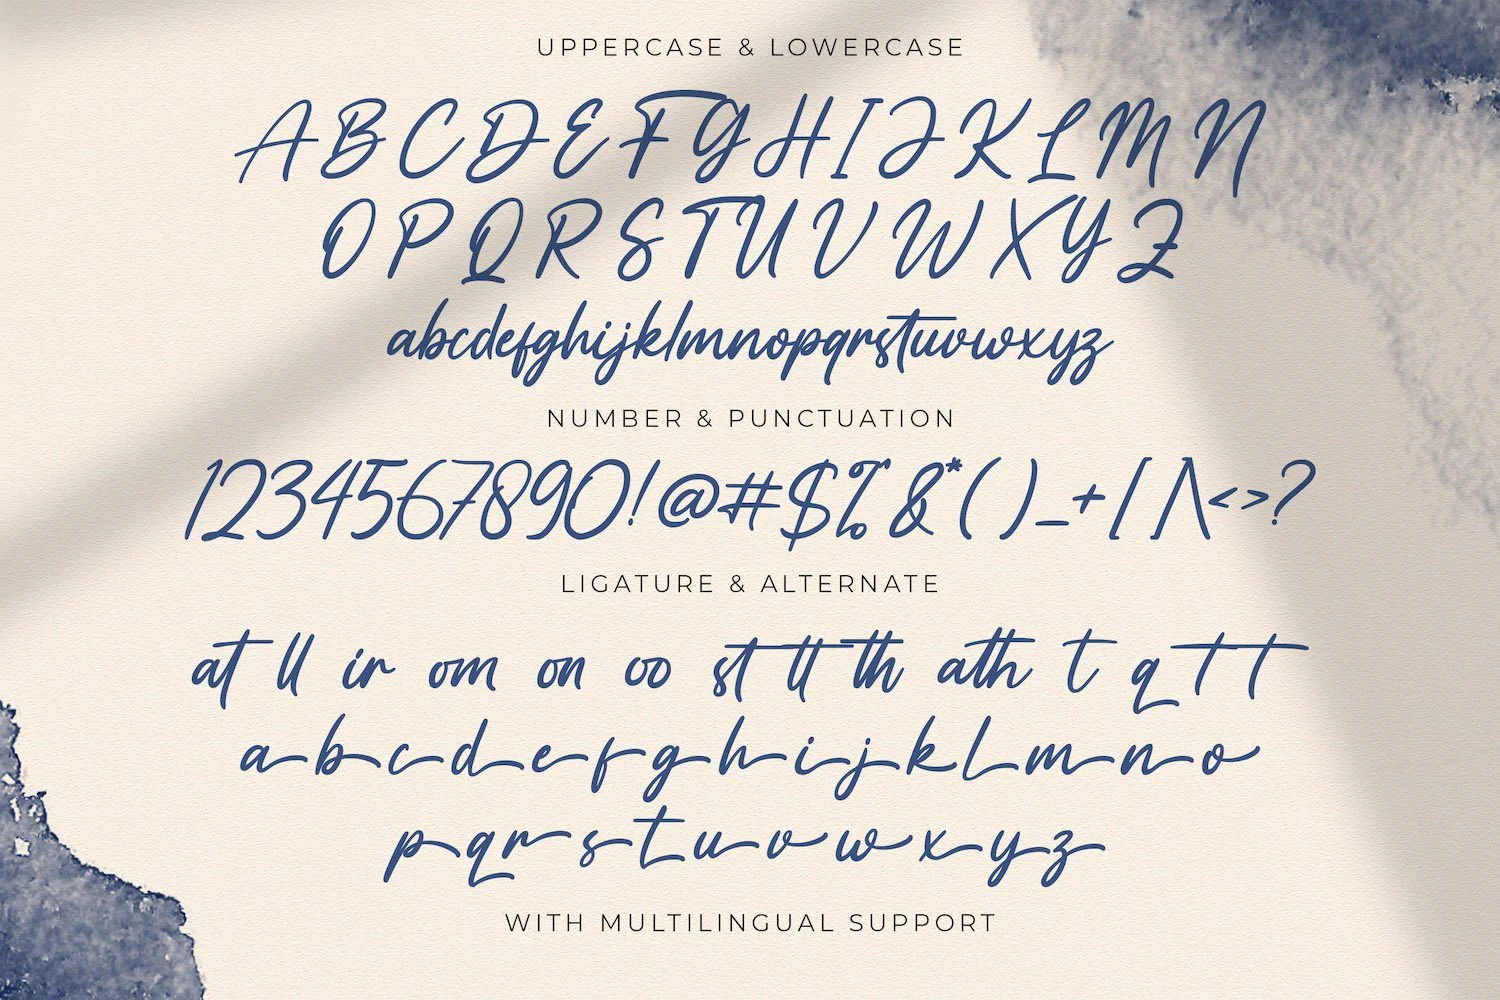 UPPERCASE & LOWERCASE
ABCDEFGHIJKLMN
OPQRSTUVWXYZ
abcdefghijklmnopqrstuvwxyz
NUMBER & PUNCTUATION
1234567890!@#$%&*()_+[/\<>?
LIGATURE & ALTERNATE
at ll ir om on oo st tt th ath t q t t
a b c d e f g h i j k l m n o
p q r s t u v w x y z
WITH MULTILINGUAL SUPPORT